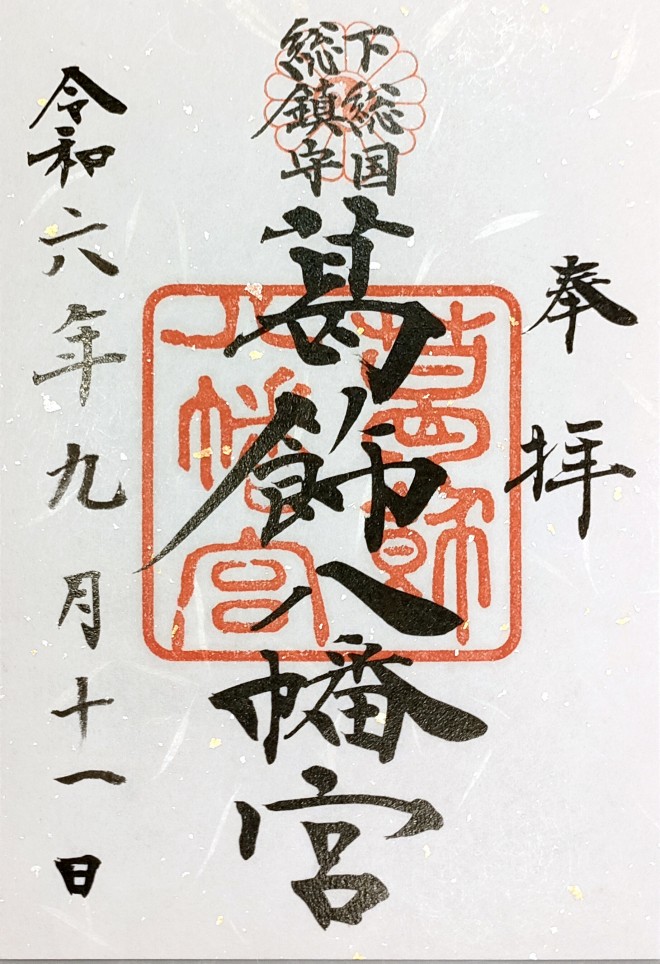 奉拝
下総国
総鎮守
葛飾八幡宮
葛飾
八幡宮
令和六年九月十一日